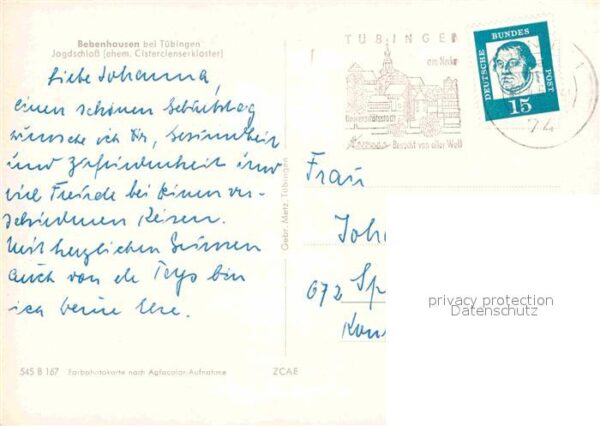 Bebenhausen bei Tübingen
Jagdschloß (ehem. Cisterzienserkloster)
Liebe Johanna,
einen schönen Geburtstag
wünsche ich Dir, Gesundheit
und Zufriedenheit und
viel Freude bei Deinen ver-
schiedenen Reisen.
Mit herzlichen Grüssen
auch von de bin
ich Deine
545 B 167 Farbphotokarte nach Agfacolor-Aufnahme ZCAE
Gebr. Metz, Tübingen
TÜBINGEN
am Neckar
Universitätsstadt
Besucht von aller Welt
DEUTSCHE BUNDES POST
15
Frau
Joha
672 Sp
privacy protection
Datenschutz